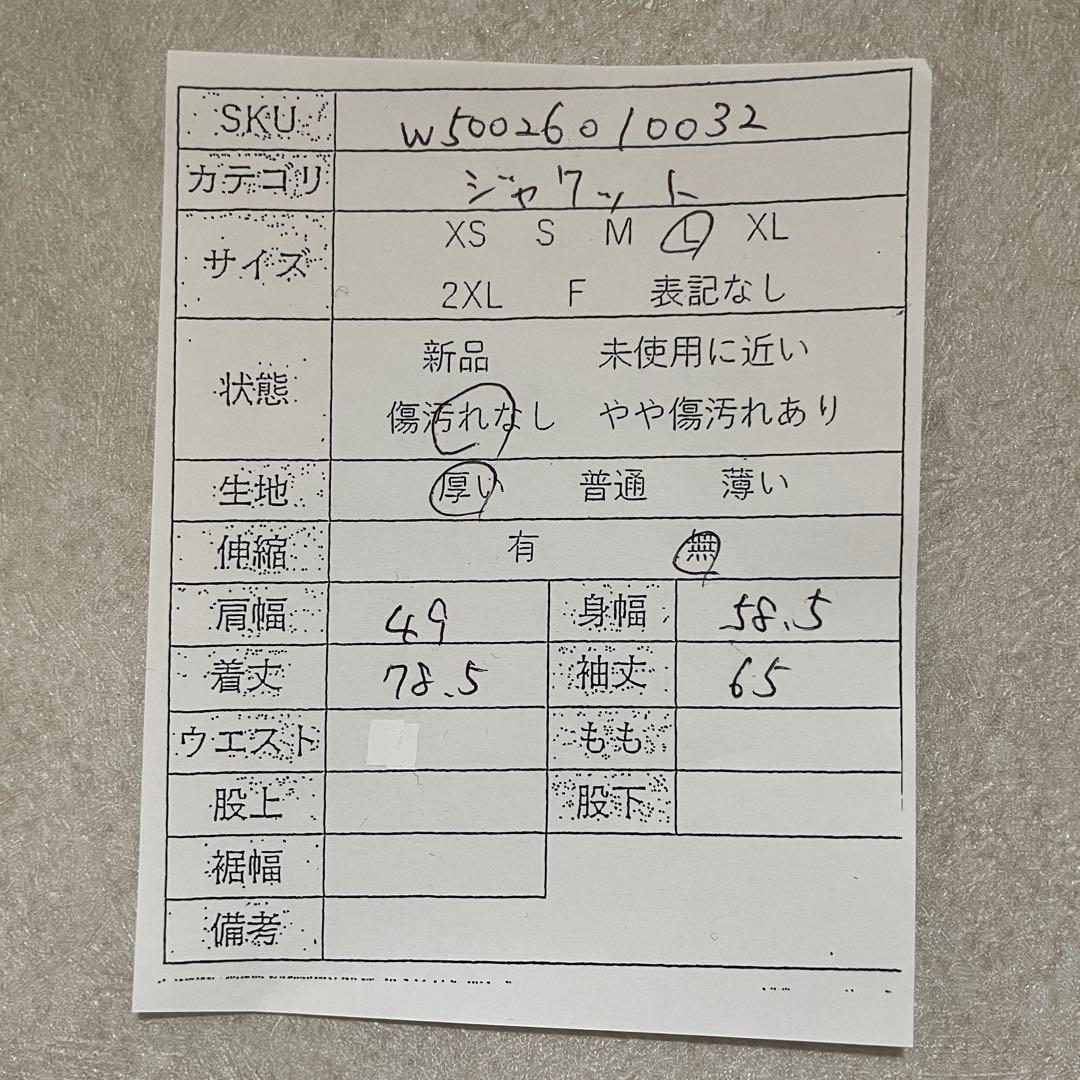 SKU W50026010032
カテゴリ ジャケット
サイズ XS S M L XL
2XL F 表記なし
状態 新品 未使用に近い
傷汚れなし やや傷汚れあり
生地 厚い 普通 薄い
伸縮 有 無
肩幅 49 身幅 58.5
着丈 78.5 袖丈 65
ウエスト もも
股上 股下
裾幅
備考